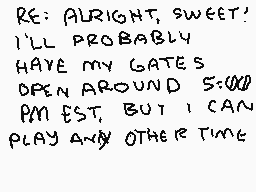 RE: ALRIGHT, SWEET!
I'LL PROBABLY
HAVE MY GATES
OPEN AROUND 5:00
PM EST, BUT I CAN
PLAY ANY OTHER TIME